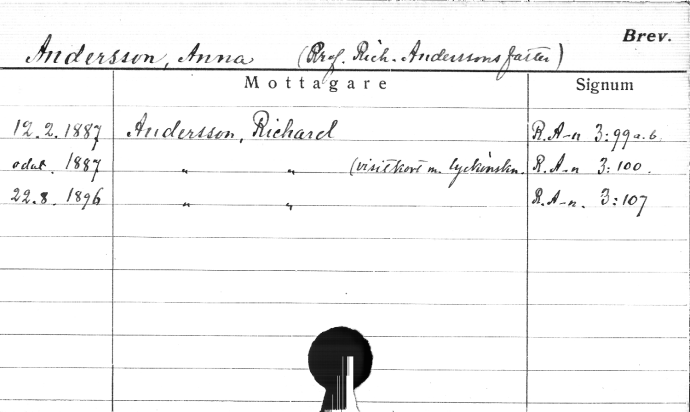 Brev.
Andersson, Anna (Prof. Rich. Anderssons faster)
Mottagare Signum
12.2.1887 Andersson, Richard R.A-n 3:99a.b.
odat. 1887 " " (visitkort m. lyckönskn. R.A-n 3:100.
22.8.1896 " " R.A-n. 3:107